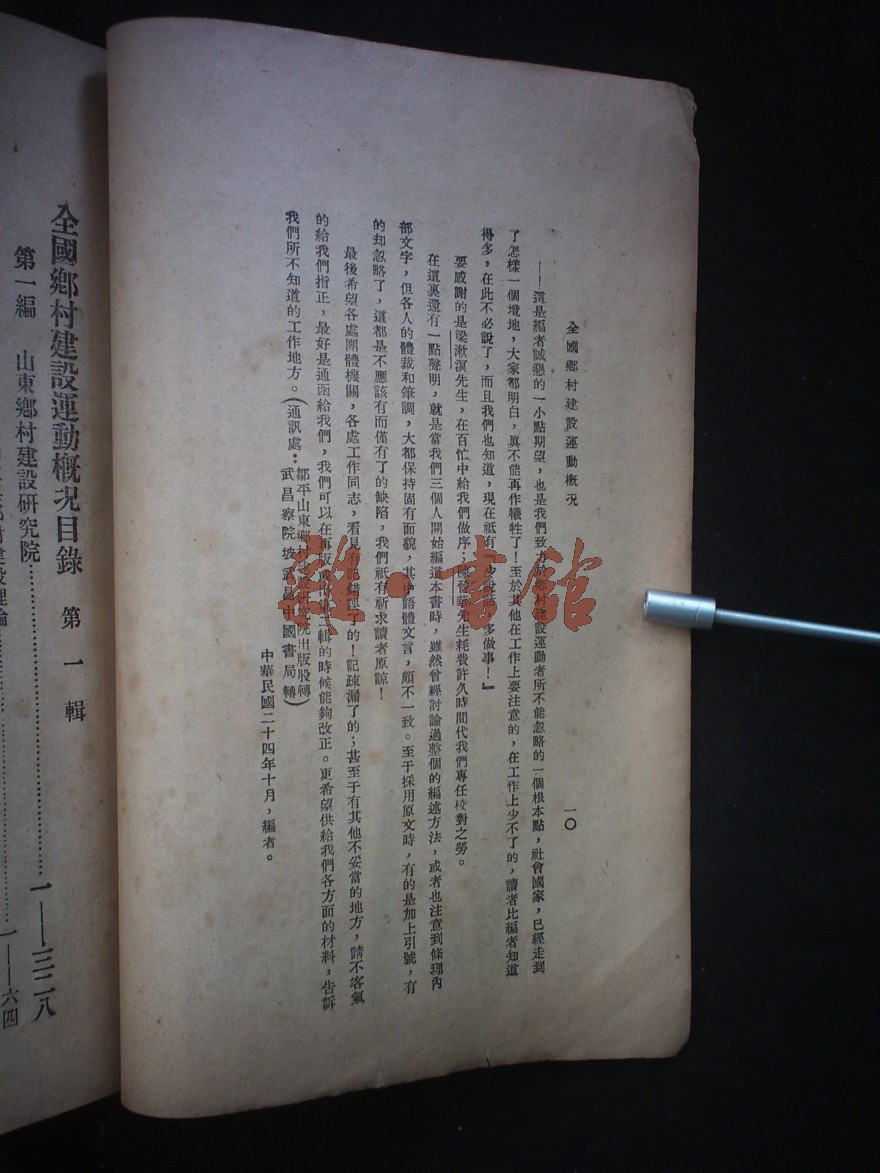 全國鄉村建設運動概況
一〇
——這是編者誠懇的一小點期望,也是我們致力於鄉村建設運動者所不能忽略的一個根本點,社會國家,已經走到
了怎樣一個境地,大家都明白,眞不能再作犧牲了!至於其他在工作上要注意的,在工作上少不了的,讀者比編者知道
得多,在此不必說了,而且我們也知道,現在祇有少說話多做事!』
要感謝的是梁漱溟先生,在百忙中給我們做序;先生耗費許久時間代我們專任校對之勞。
在這裏還有一點聲明,就是當我們三個人開始編這本書時,雖然曾經討論過整個的編述方法,或者也注意到條理內
部文字,但各人的體裁和筆調,大都保持固有面貌,其中語體文言,頗不一致。至于採用原文時,有的是加上引號,有
的却忽略了,這都是不應該有而僅有了的缺陷,我們祇有祈求讀者原諒!
最後希望各處團體機關,各處工作同志,看見有記錯誤了的!記疎漏了的;甚至于有其他不妥當的地方,請不客氣
的給我們指正,最好是通函給我們,我們可以在再版或輯的時候能夠改正。更希望供給我們各方面的材料,告訴
我們所不知道的工作地方。(通訊處:鄒平山東鄉村研究院出版股轉
武昌察院坡武昌中國書局轉)
中華民國二十四年十月,編者。
全國鄉村建設運動概況目錄 第一輯
第一編 山東鄉村建設研究院……一——三二八
村建設理論……一——六四
雜·書館